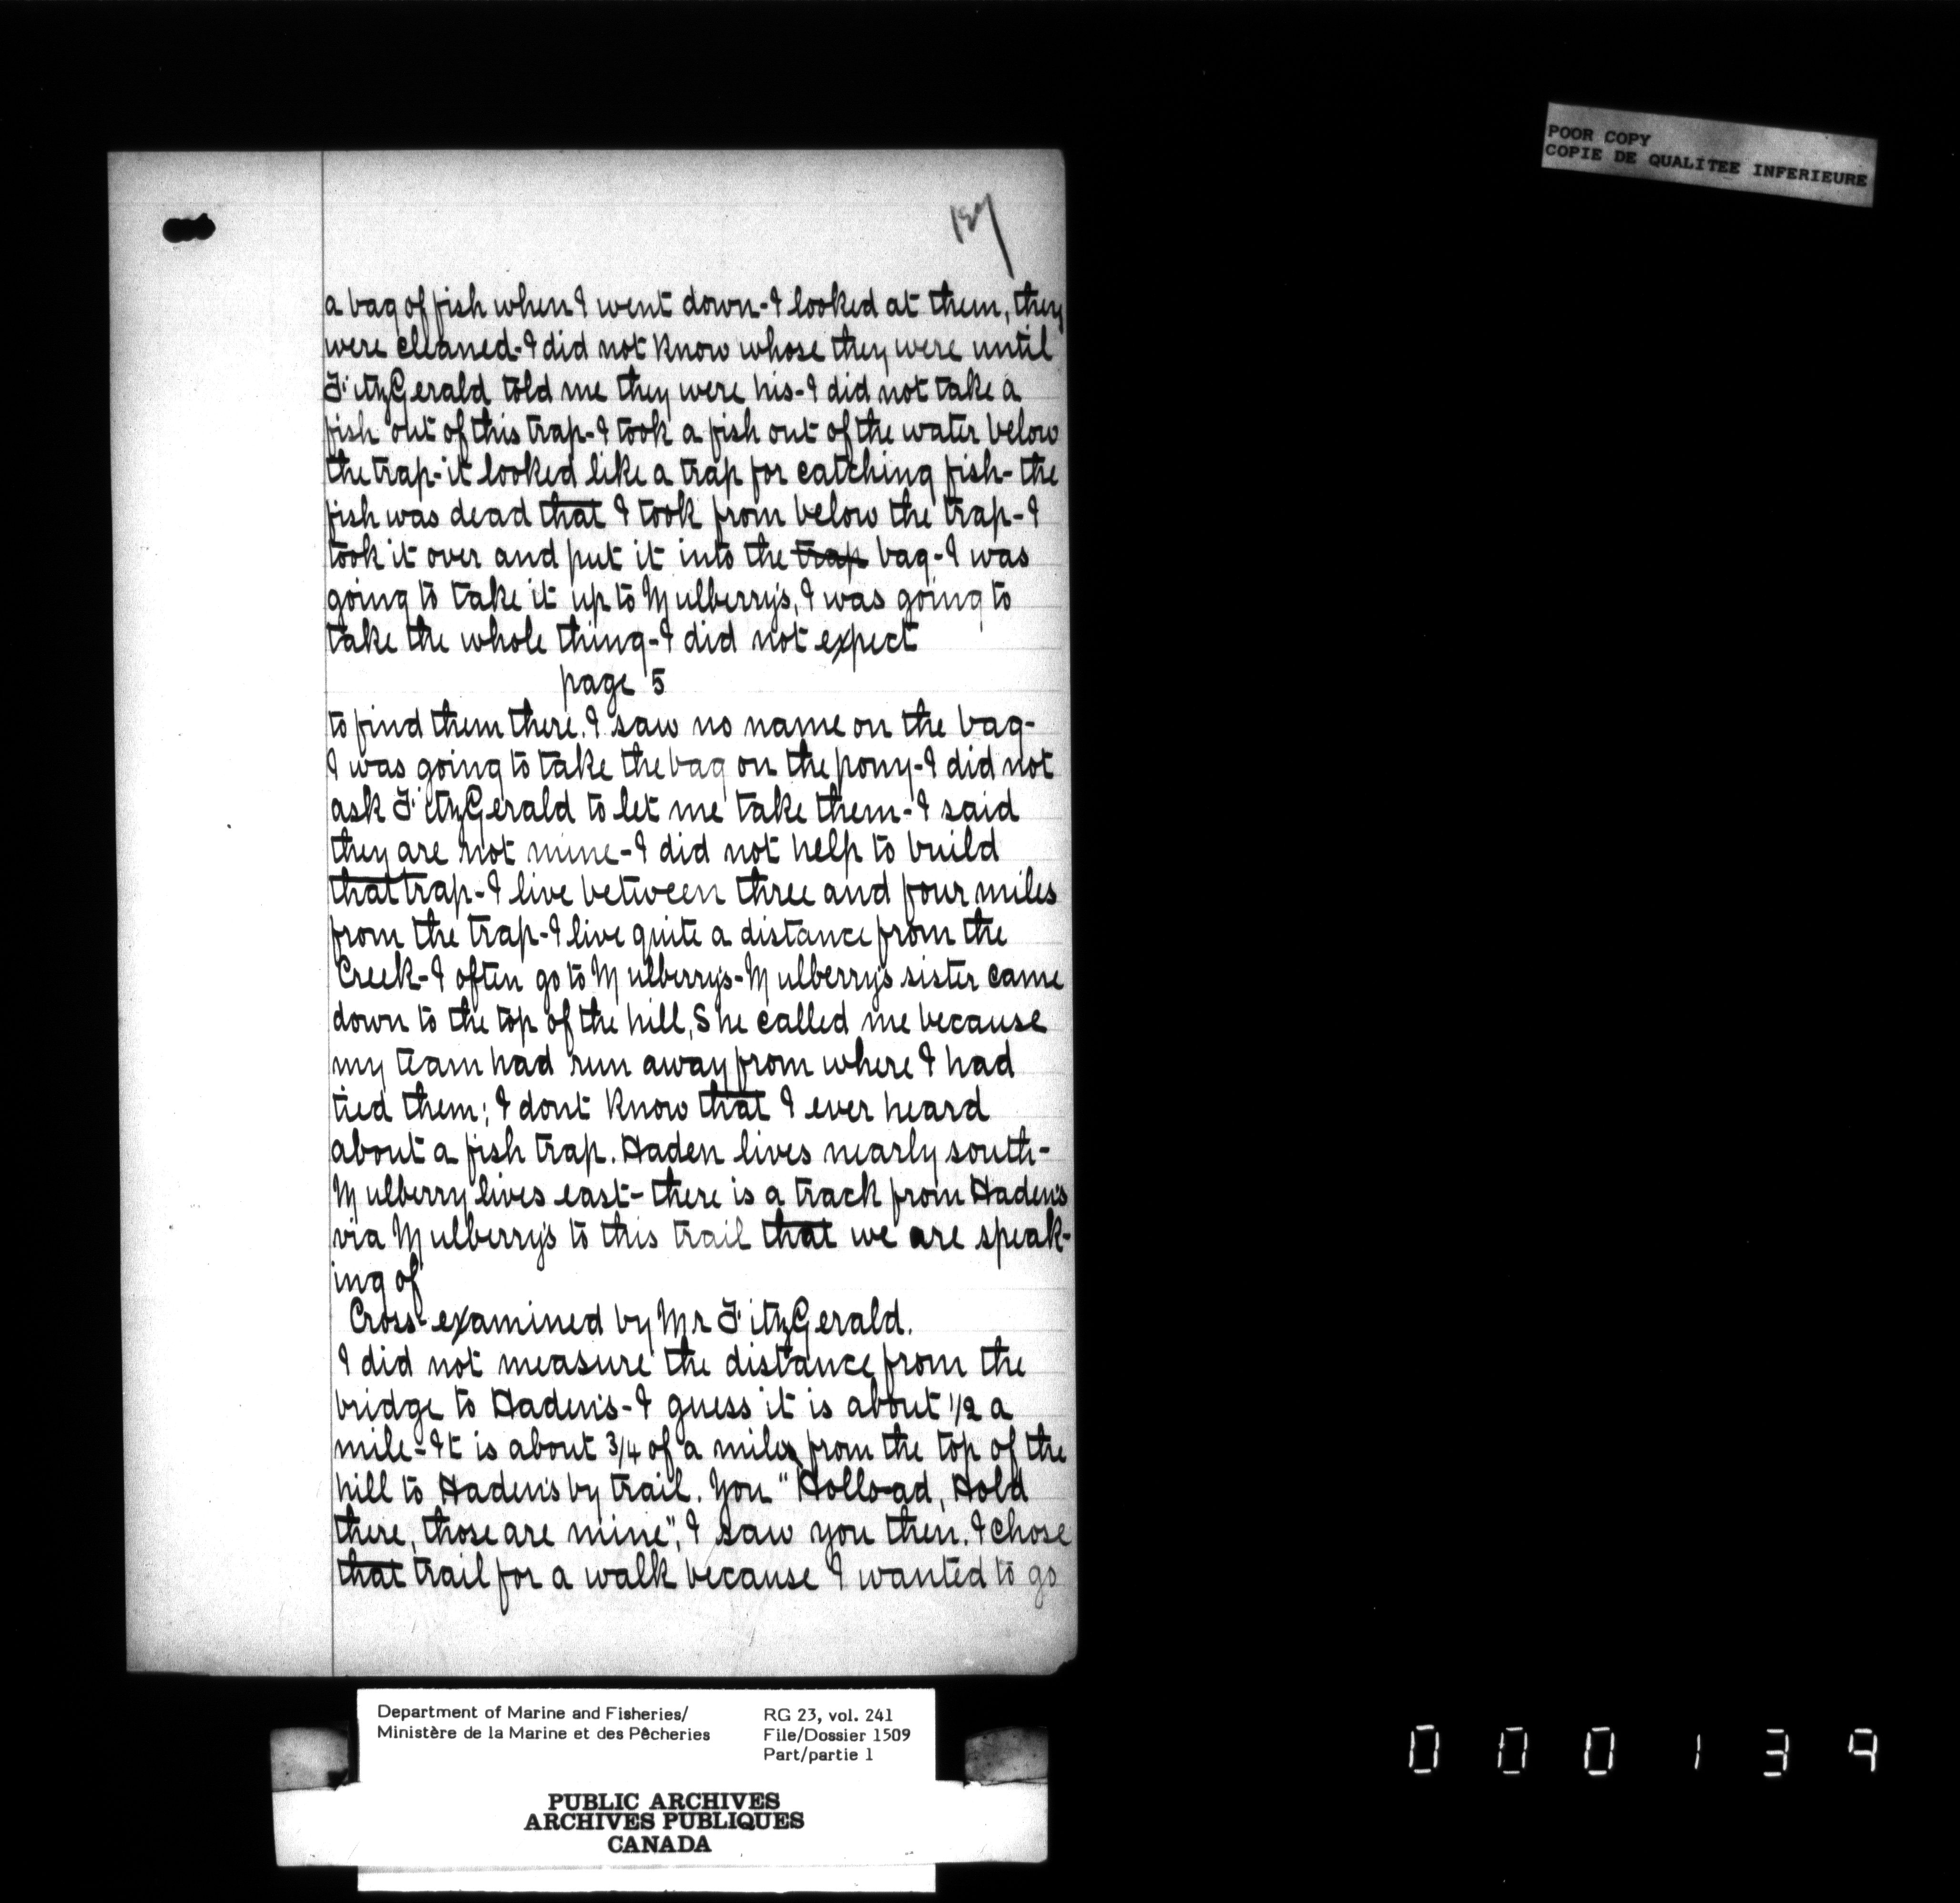 POOR COPY
COPIE DE QUALITEE INFERIEURE
137
a bag of fish when I went down-I looked at them, they
were cleaned-I did not Know whose they were until
FitzGerald told me they were his-I did not take a
fish out of this trap-I took a fish out of the water below
the trap-it looked like a trap for catching fish-the
fish was dead that I took from below the trap-I
took it over and put it into the trap bag-I was
going to take it up to Mulberry's, I was going to
take the whole thing-I did not expect
page 5
to find them there. I saw no name on the bag-
I was going to take the bag on the pony-I did not
ask FitzGerald to let me take them-I said
they are not mine-I did not help to build
that trap-I live between three and four miles
from the trap-I live quite a distance from the
Creek-I often go to Mulberry's-Mulberry's sister came
down to the top of the hill, She called me because
my team had run away from where I had
tied them; I dont Know that I ever heard
about a fish trap. Haden lives nearly south-
Mulberry lives east-there is a track from Haden's
via Mulberry's to this trail that we are speak-
ing of
Cross-examined by Mr FitzGerald.
I did not measure the distance from the
bridge to Haden's-I guess it is about 1/2 a
mile-It is about 3/4 of a mile from the top of the
hill to Haden's by trail. You "Holload, Hold
there, those are mine", I saw you then. I chose
that trail for a walk because I wanted to go
Department of Marine and Fisheries/
Ministère de la Marine et des Pêcheries
RG 23, vol. 241
File/Dossier 1509
Part/partie 1
PUBLIC ARCHIVES
ARCHIVES PUBLIQUES
CANADA
000139